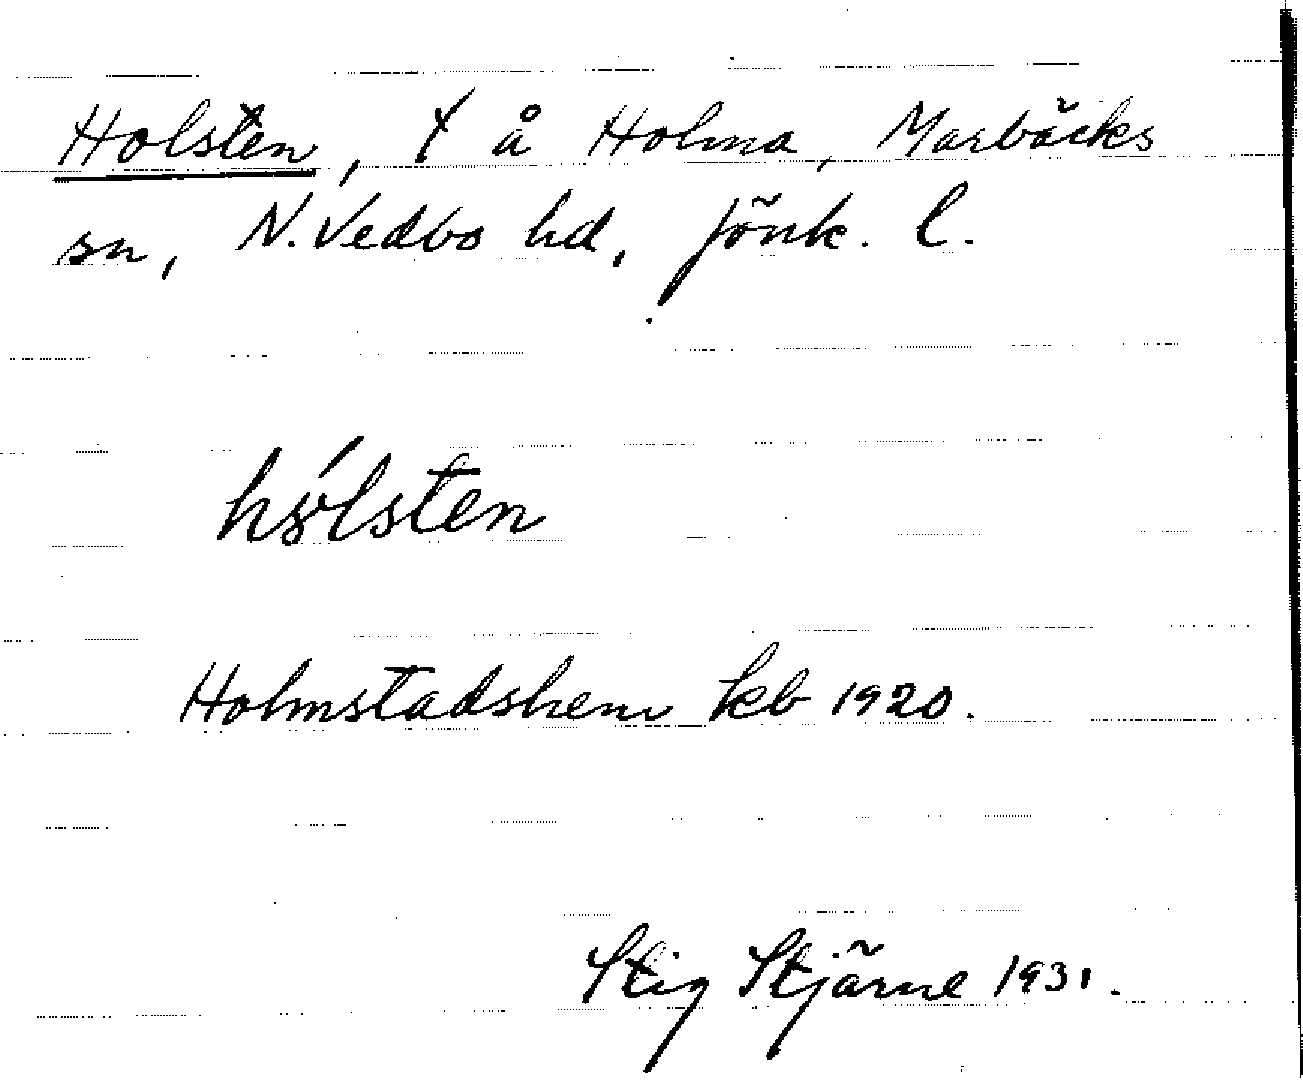 Holsten, t å Holma, Marbäcks
sn, N. Vedbo hd, Jönk. l.
hólsten
Holmstadshem kb 1920.
Stig Stjärne 1931.